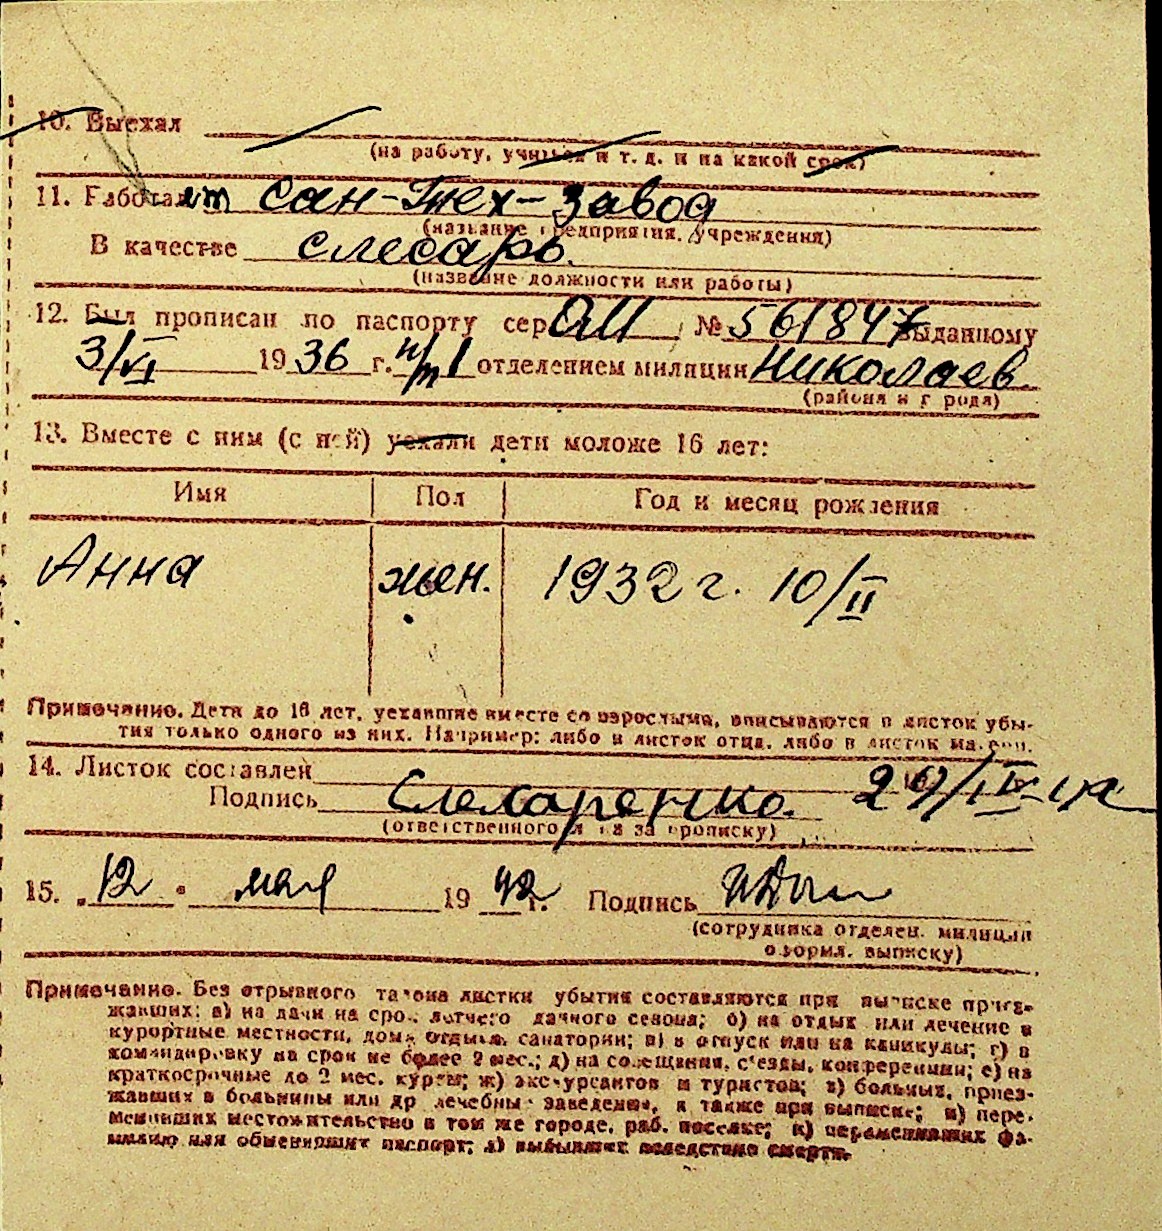 10. Выехал
(на работу, учиться и т. д. и на какой срок)
11. Работает Сан-Тех-завод
(название предприятия, учреждения)
В качестве слесарь.
(название должности или работы)
12. Был прописан по паспорту сер. № 561847 выданному
3/VI 1936 г. п/т 1 отделением милиции Николаев
(района и города)
13. Вместе с ним (с ней) уехали дети моложе 16 лет:
Имя Пол Год и месяц рождения
Анна жен. 1932 г. 10/II
Примечание. Дети до 16 лет, уехавшие вместе со взрослыми, вписываются в листок убы-
тия только одного из них. Например: либо в листок отца, либо в листок матери.
14. Листок составлен
Подпись 29/IV-42
(ответственного лица за прописку)
15. 12 мая 1942 г. Подпись
(сотрудника отделен. милиции
оформл. выписку)
Примечание. Без отрывного талона листки убытия составляются при выписке приез-
жавших: а) на дачи на срок летнего дачного сезона; б) на отдых или лечение в
курортные местности, дома отдыха, санатории; в) в отпуск или на каникулы; г) в
командировку на срок не более 2 мес.; д) на совещания, съезды, конференции; е) на
краткосрочные до 2 мес. курсы; ж) экскурсантов и туристов; з) больных, приез-
жавших в больницы или др лечебные заведения, а также при выписке; и) пере-
менивших местожительство в том же городе, раб. поселке; к) переменивших фа-
милию или обменивших паспорт; л) выбывших вследствие смерти.